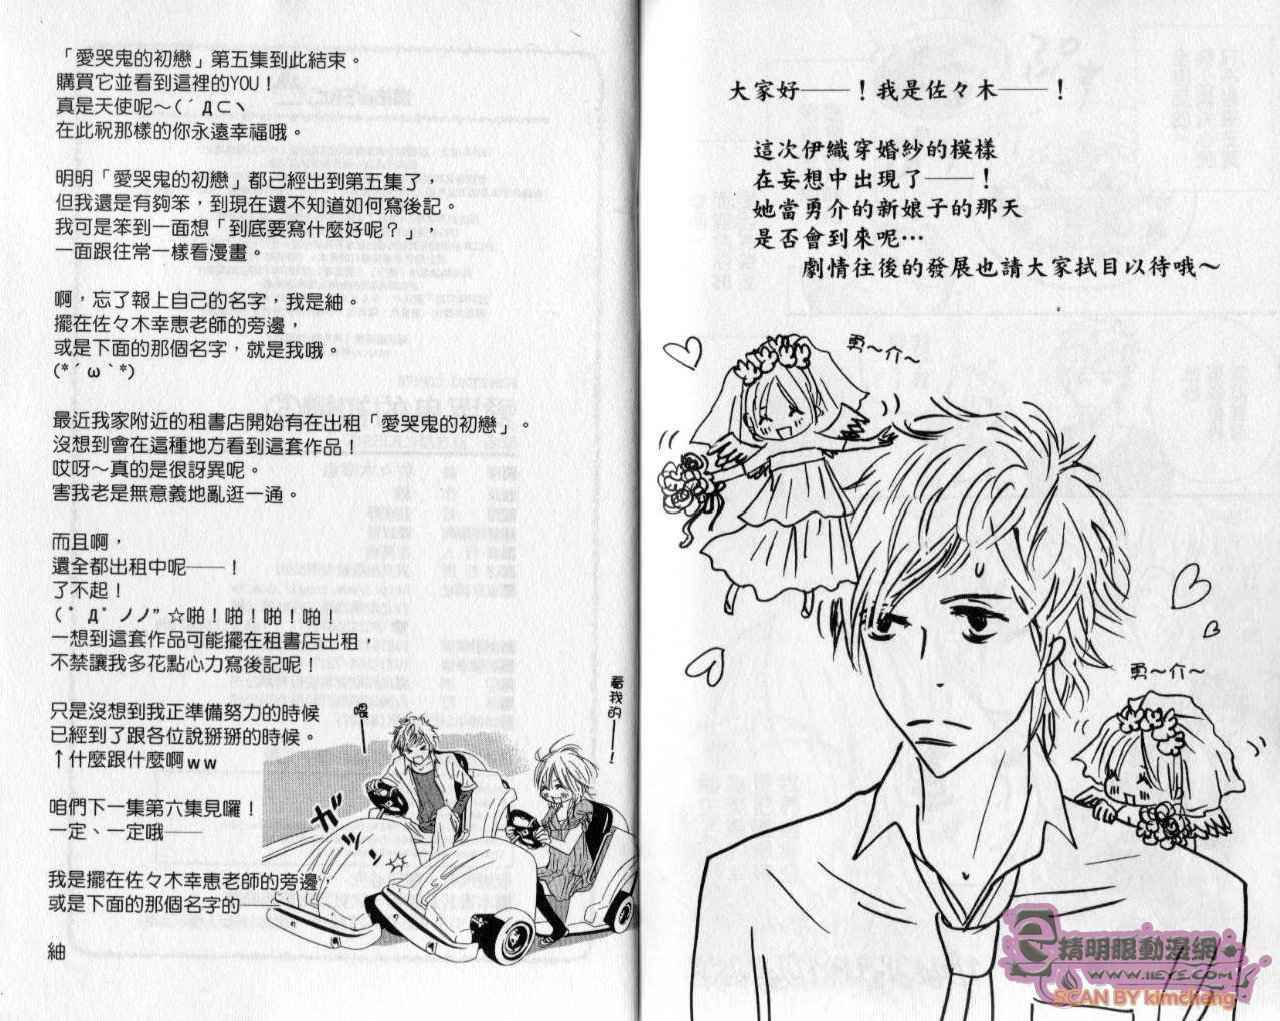 大家好——！我是佐々木——！
這次伊織穿婚紗的模樣
在妄想中出現了——！
她當勇介的新娘子的那天
是否會到來呢…
劇情往後的發展也請大家拭目以待哦～
勇～介～
勇～介～
「愛哭鬼的初戀」第五集到此結束。
購買它並看到這裡的YOU！
真是天使呢～(´д⊂ヽ
在此祝那樣的你永遠幸福哦。
明明「愛哭鬼的初戀」都已經出到第五集了，
但我還是有夠笨，到現在還不知道如何寫後記。
我可是笨到一面想「到底要寫什麼好呢？」，
一面跟往常一樣看漫畫。
啊，忘了報上自己的名字，我是紬。
擺在佐々木幸惠老師的旁邊，
或是下面的那個名字，就是我哦。
(*´ω｀*)
最近我家附近的租書店開始有在出租「愛哭鬼的初戀」。
沒想到會在這種地方看到這套作品！
哎呀～真的是很訝異呢。
害我老是無意義地亂逛一通。
而且啊，
還全都出租中呢——！
了不起！
(ﾟдﾟノノ"☆啪！啪！啪！啪！
一想到這套作品可能擺在租書店出租，
不禁讓我多花點心力寫後記呢！
只是沒想到我正準備努力的時候
已經到了跟各位說掰掰的時候。
↑什麼跟什麼啊ww
咱們下一集第六集見囉！
一定、一定哦——
我是擺在佐々木幸惠老師的旁邊，
或是下面的那個名字的——
紬
看我的——！
喂——
ガッ
精明眼動漫網
WWW.IIEYE.COM
SCAN BY kimcheng